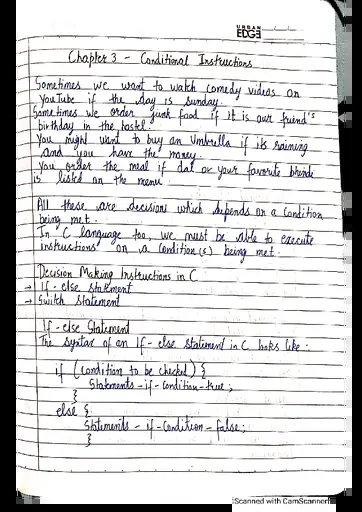 URBAN
EDGE
Chapter 3 - Conditional Instructions
Sometimes we want to watch comedy videos on
YouTube if the day is Sunday.
Sometimes we order junk food if it is our friend's
birthday in the hostel.
You might want to buy an Umbrella if its raining
and you have the money.
You order the meal if dal or your favorite bhindi
is listed on the menu.
All these are decisions which depends on a condition
being met.
In C language too, we must be able to execute
instructions on a condition(s) being met.
Decision Making Instructions in C
→ If-else statement
→ Switch Statement
If-else Statement
The syntax of an If-else statement in C looks like:
if (condition to be checked) {
Statements-if-condition-true;
}
else {
Statements-if-condition-false;
}
Scanned with CamScanner